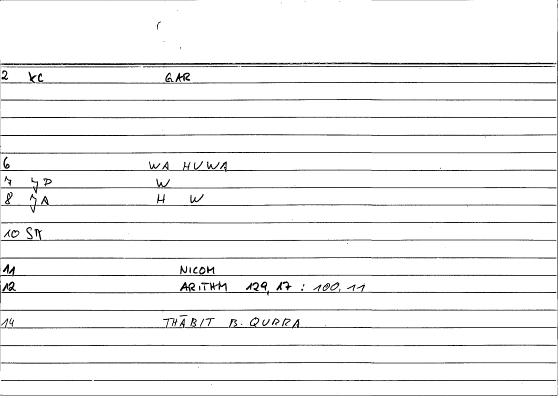 2 KC GAR
6 WA HUWA
7 JD W
8 JA H W
10 ST
11 NICOM
12 ARITHM 129, 17 : 100, 11
14 THĀBIT B. QURRA